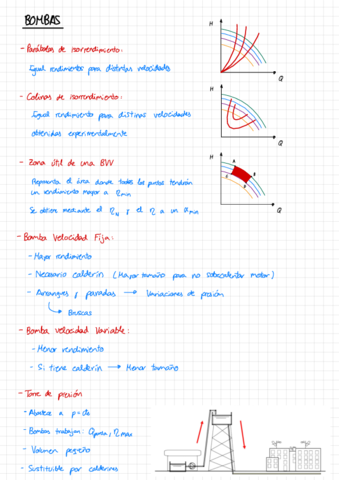 BOMBAS
- Parábolas de isorrendimiento:
Igual rendimiento para distintas velocidades
H
Q
- Colinas de isorrendimiento:
Igual rendimiento para distintas velocidades
obtenidas experimentalmente
H
Q
- Zona útil de una BVV
Representa el área donde todos los puntos tendrán
un rendimiento mayor a η min
Se obtiene mediante el η N y el η a un α min
H
A
B
C
D
Q
- Bomba Velocidad Fija:
- Mayor rendimiento
- Necesario calderín (Mayor tamaño para no sobrecalentar motor)
- Arranques y paradas → Variaciones de presión
↳ Bruscas
- Bomba velocidad Variable:
- Menor rendimiento
- Si tiene calderín → Menor tamaño
- Torre de presión
- Abastece a p=cte
- Bombas trabajan: Q punta, η max
- Volumen pequeño
- Sustituible por calderines